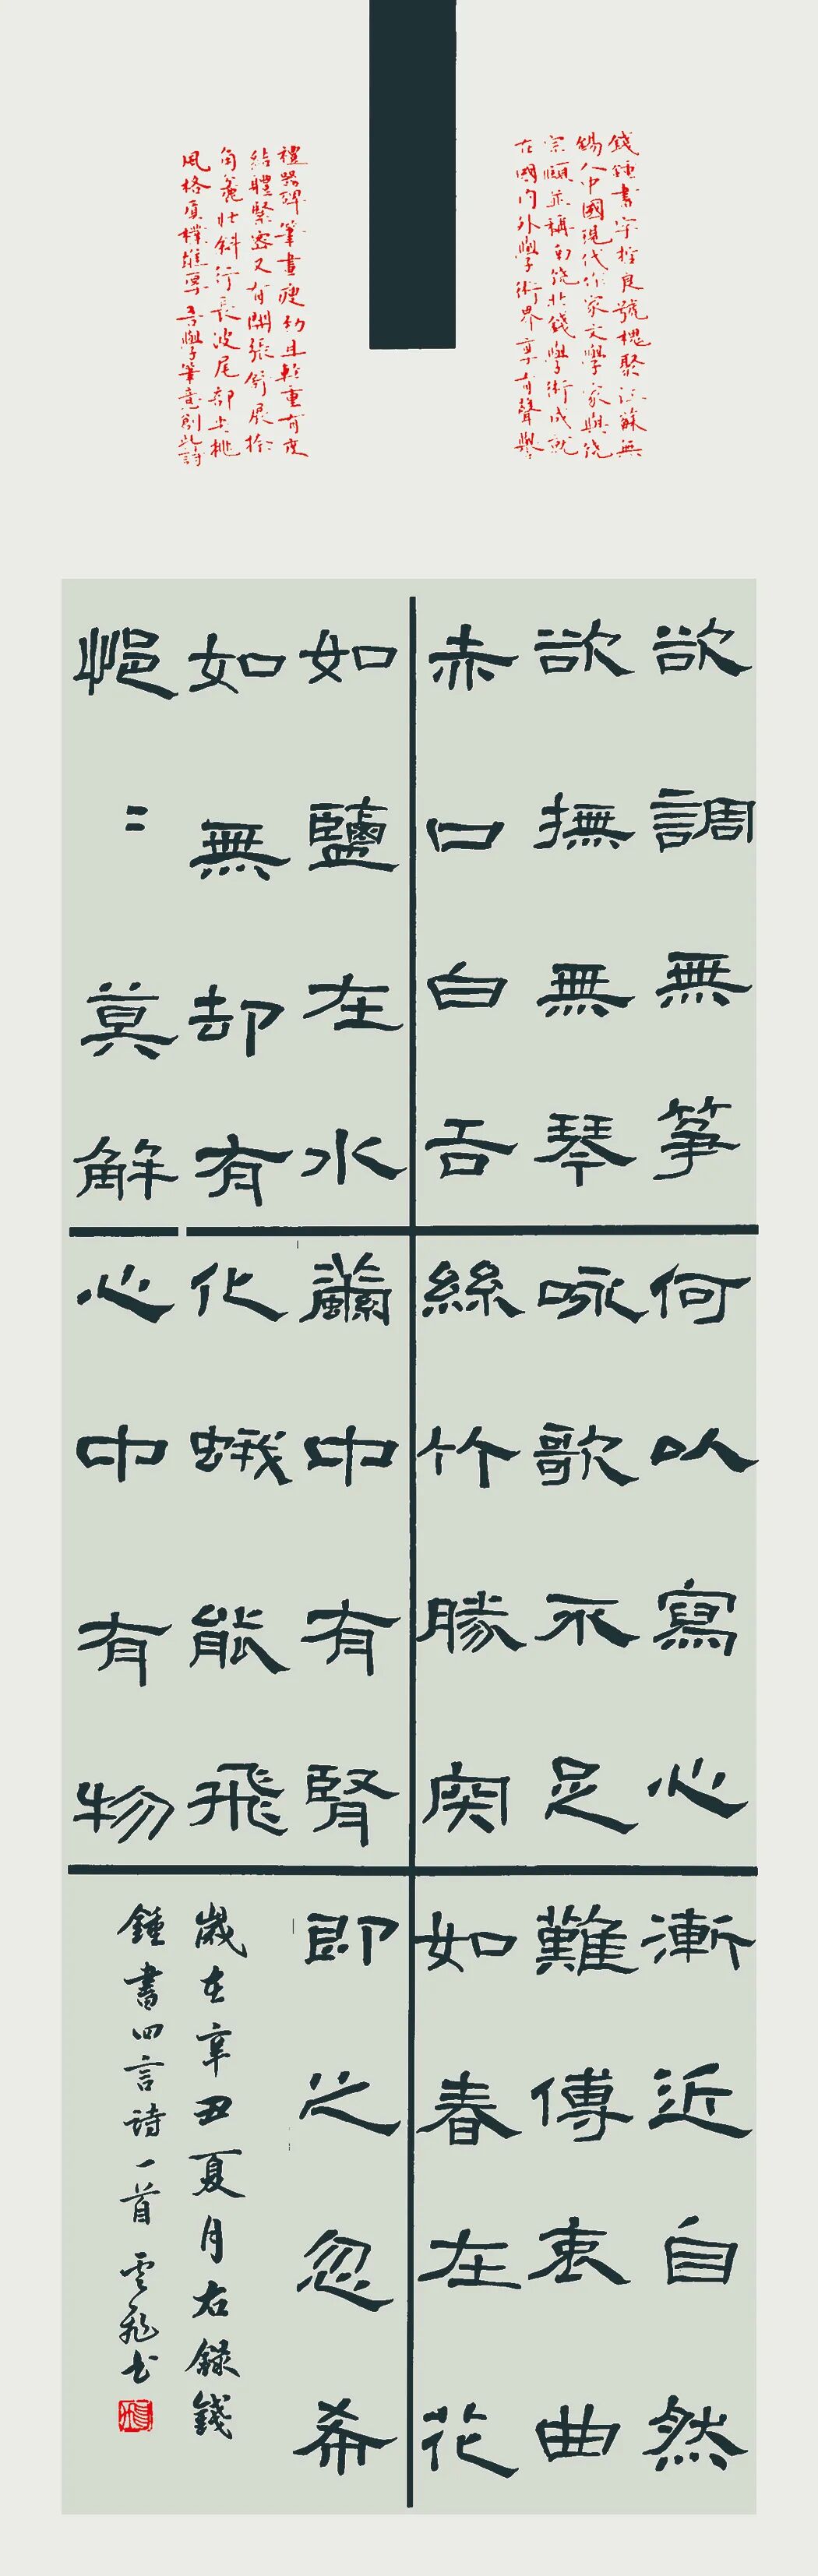 錢鍾書字哲良號槐聚江蘇無
錫人中國現代作家文學家與饒
宗頤並稱南饒北錢學術成就
在國内外學術界享有聲譽
禮器碑筆畫瘦勁且輕重有度
結體緊密又有開張舒展
角 壯斜行長波尾部上挑
風格質樸 厚吾學筆意創此詩
欲調無箏
欲撫無琴
赤口白舌
何以寫心
咏歌不足
絲竹勝肉
漸近自然
難傳衷曲
如春在花
如鹽在水
如無却有
悒〻莫解
繭中有腎
化蛾能飛
心中有物
即之忽希
歲在辛丑夏月右錄錢
鍾書四言詩一首 雲飛書